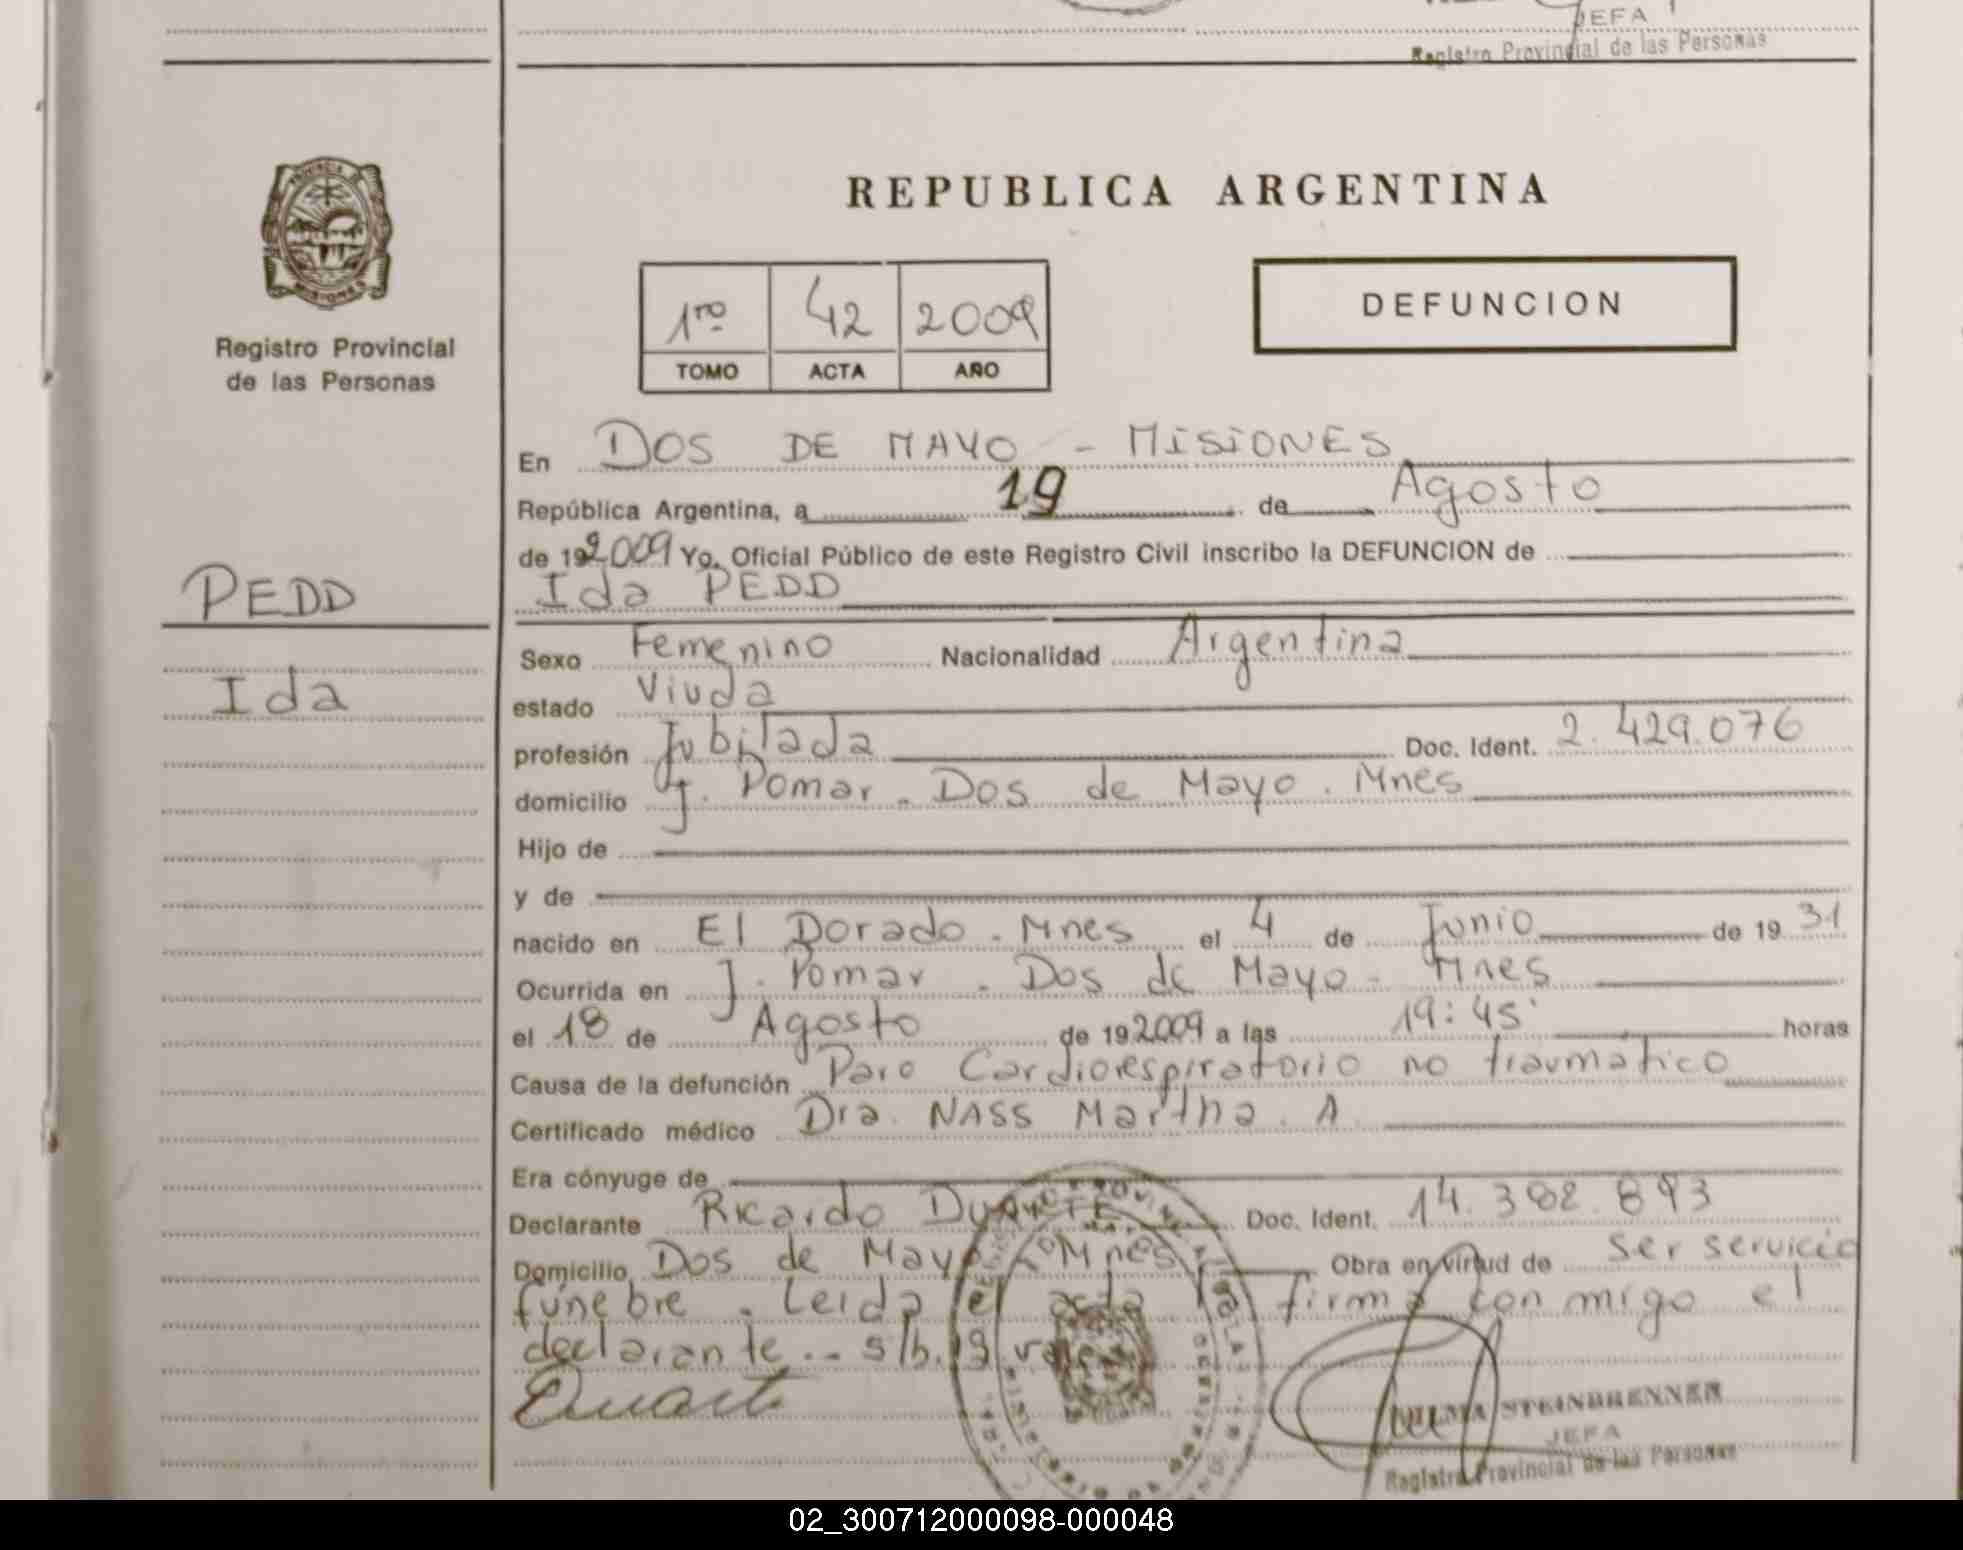 JEFA
Registro Provincial de las Personas
PROVINCIA DE
MISIONES
Registro Provincial
de las Personas
REPUBLICA ARGENTINA
1ro 42 2009
TOMO ACTA AÑO
DEFUNCION
En DOS DE MAYO - MISIONES
República Argentina, a 19 de Agosto
de 19 2009 Yo, Oficial Público de este Registro Civil inscribo la DEFUNCION de
PEDD
Ida PEDD
Sexo Femenino Nacionalidad Argentina
Ida
estado Viuda
profesión Jubilada Doc. Ident. 2.429.076
domicilio J. Pomar - Dos de Mayo. Mnes
Hijo de
y de
nacido en El Dorado - Mnes el 4 de Junio de 19 31
Ocurrida en J. Pomar - Dos de Mayo - Mnes
el 18 de Agosto de 19 2009 a las 19:45' horas
Causa de la defunción Paro Cardiorespiratorio no traumatico
Certificado médico Dra. NASS Martha. A.
Era cónyuge de
Declarante Ricardo DUARTE Doc. Ident. 14.382.893
Domicilio Dos de Mayo Mnes Obra en virtud de ser servicio
fúnebre. Leida el acta firma conmigo el
declarante.- s/b. 19 vale
Duarte
WILMA STEINBRENNER
JEFA
Registro Provincial de las Personas
02_300712000098-000048